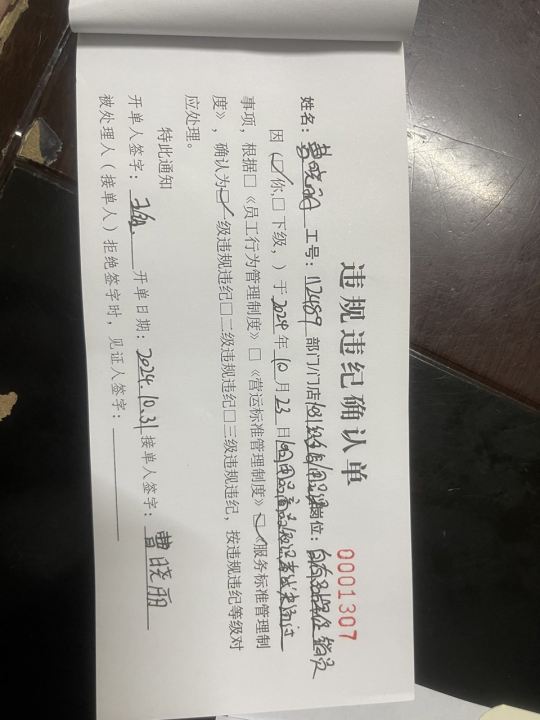 违规违纪确认单
0001307
姓名：曹晓丽 工号：112489 部门/门店 岗位：
因（☑你,□下级，）于2024年10月23日
事项，根据□《员工行为管理制度》□《营运标准管理制度》☑《服务标准管理制
度》，确认为☑一级违规违纪□二级违规违纪□三级违规违纪，按违规违纪等级对
应处理。
特此通知
开单人签字： 开单日期：2024.10.31 接单人签字：曹晓丽
被处理人（接单人）拒绝签字时，见证人签字：